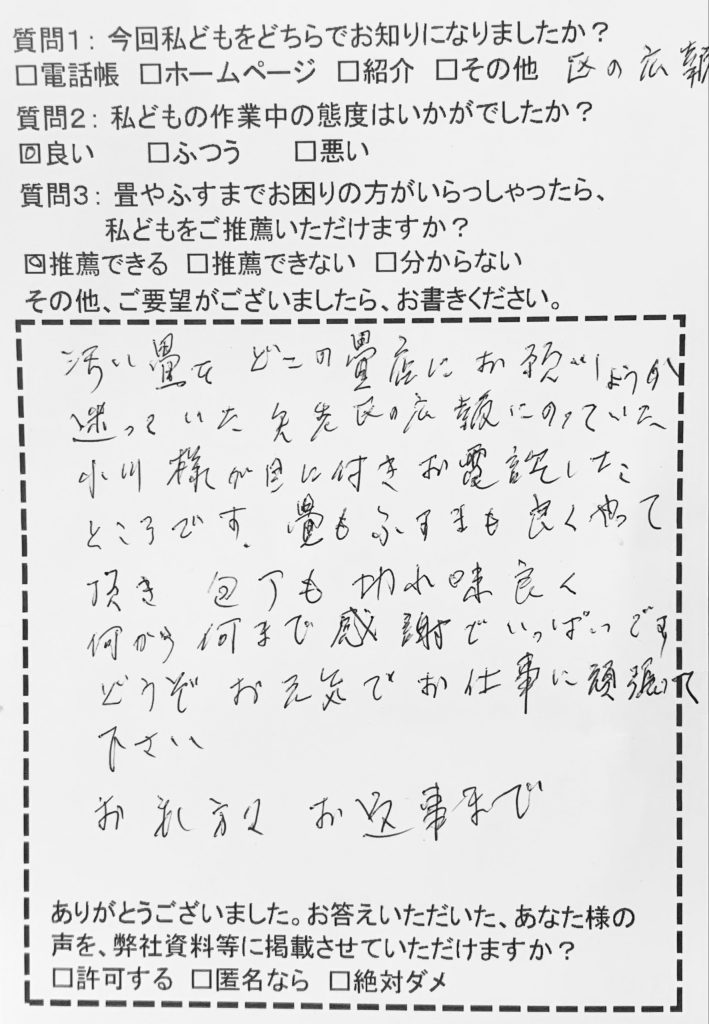 質問1：今回私どもをどちらでお知りになりましたか？
□電話帳 □ホームページ □紹介 □その他 区の広報
質問2：私どもの作業中の態度はいかがでしたか？
☑良い □ふつう □悪い
質問3：畳やふすまでお困りの方がいらっしゃったら、
私どもをご推薦いただけますか？
☑推薦できる □推薦できない □分からない
その他、ご要望がございましたら、お書きください。
汚い畳を どこの畳店にお願いしょうか
迷っていた矢先区の広報にのっていた、
小川様が目に付きお電話した
ところです。畳もふすまも良くやって
頂き 包丁も切れ味良く
何から何まで感謝でいっぱいです
どうぞ お元気でお仕事に頑張って
下さい
お礼方々 お返事まで
ありがとうございました。お答えいただいた、あなた様の
声を、弊社資料等に掲載させていただけますか？
□許可する □匿名なら □絶対ダメ